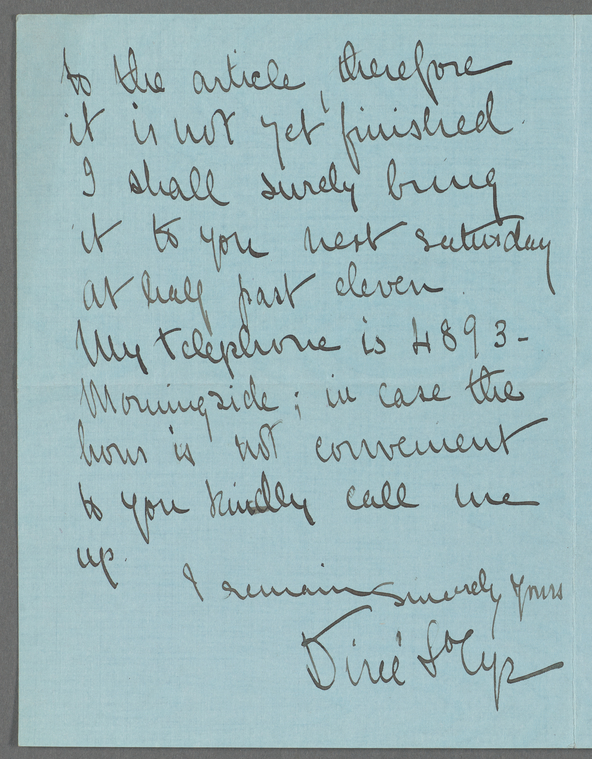 to the article, therefore
it is not yet finished.
I shall surely bring
it to you next saturday
at half past eleven.
My telephone is 4893-
Morningside; in case the
hour is not convenient
to you kindly call me
up.
I remain sincerely yours
Dircé St Cyr